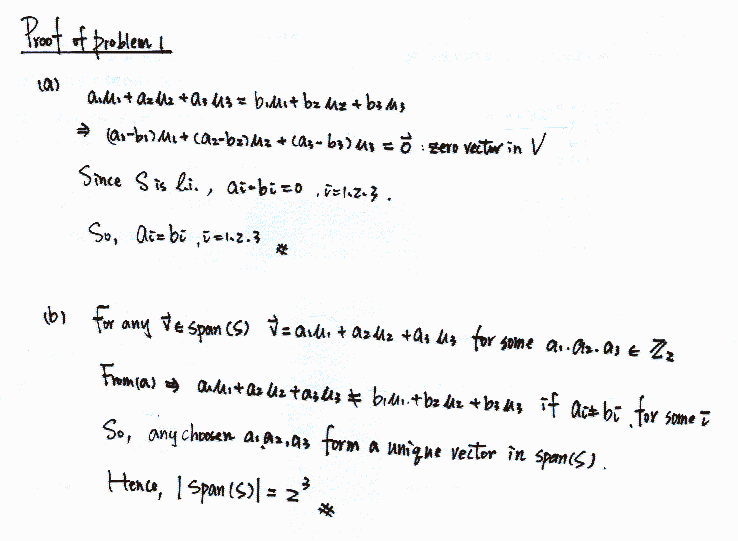 Proof of problem 1
(a)
a₁u₁ + a₂u₂ + a₃u₃ = b₁u₁ + b₂u₂ + b₃u₃
⇒ (a₁-b₁)u₁ + (a₂-b₂)u₂ + (a₃-b₃)u₃ = 0⃗ : zero vector in V
Since S is l.i., aᵢ-bᵢ=0 , i=1.2.3.
So, aᵢ=bᵢ , i=1.2.3 ※
(b) For any v⃗ ∈ span(S) v⃗ = a₁u₁ + a₂u₂ + a₃u₃ for some a₁.a₂.a₃ ∈ ℤ₂
From(a) ⇒ a₁u₁+a₂u₂+a₃u₃ ≠ b₁u₁+b₂u₂+b₃u₃ if aᵢ≠bᵢ , for some i
So, any choosen a₁,a₂,a₃ form a unique vector in span(S).
Hence, |span(S)| = 2³ ※